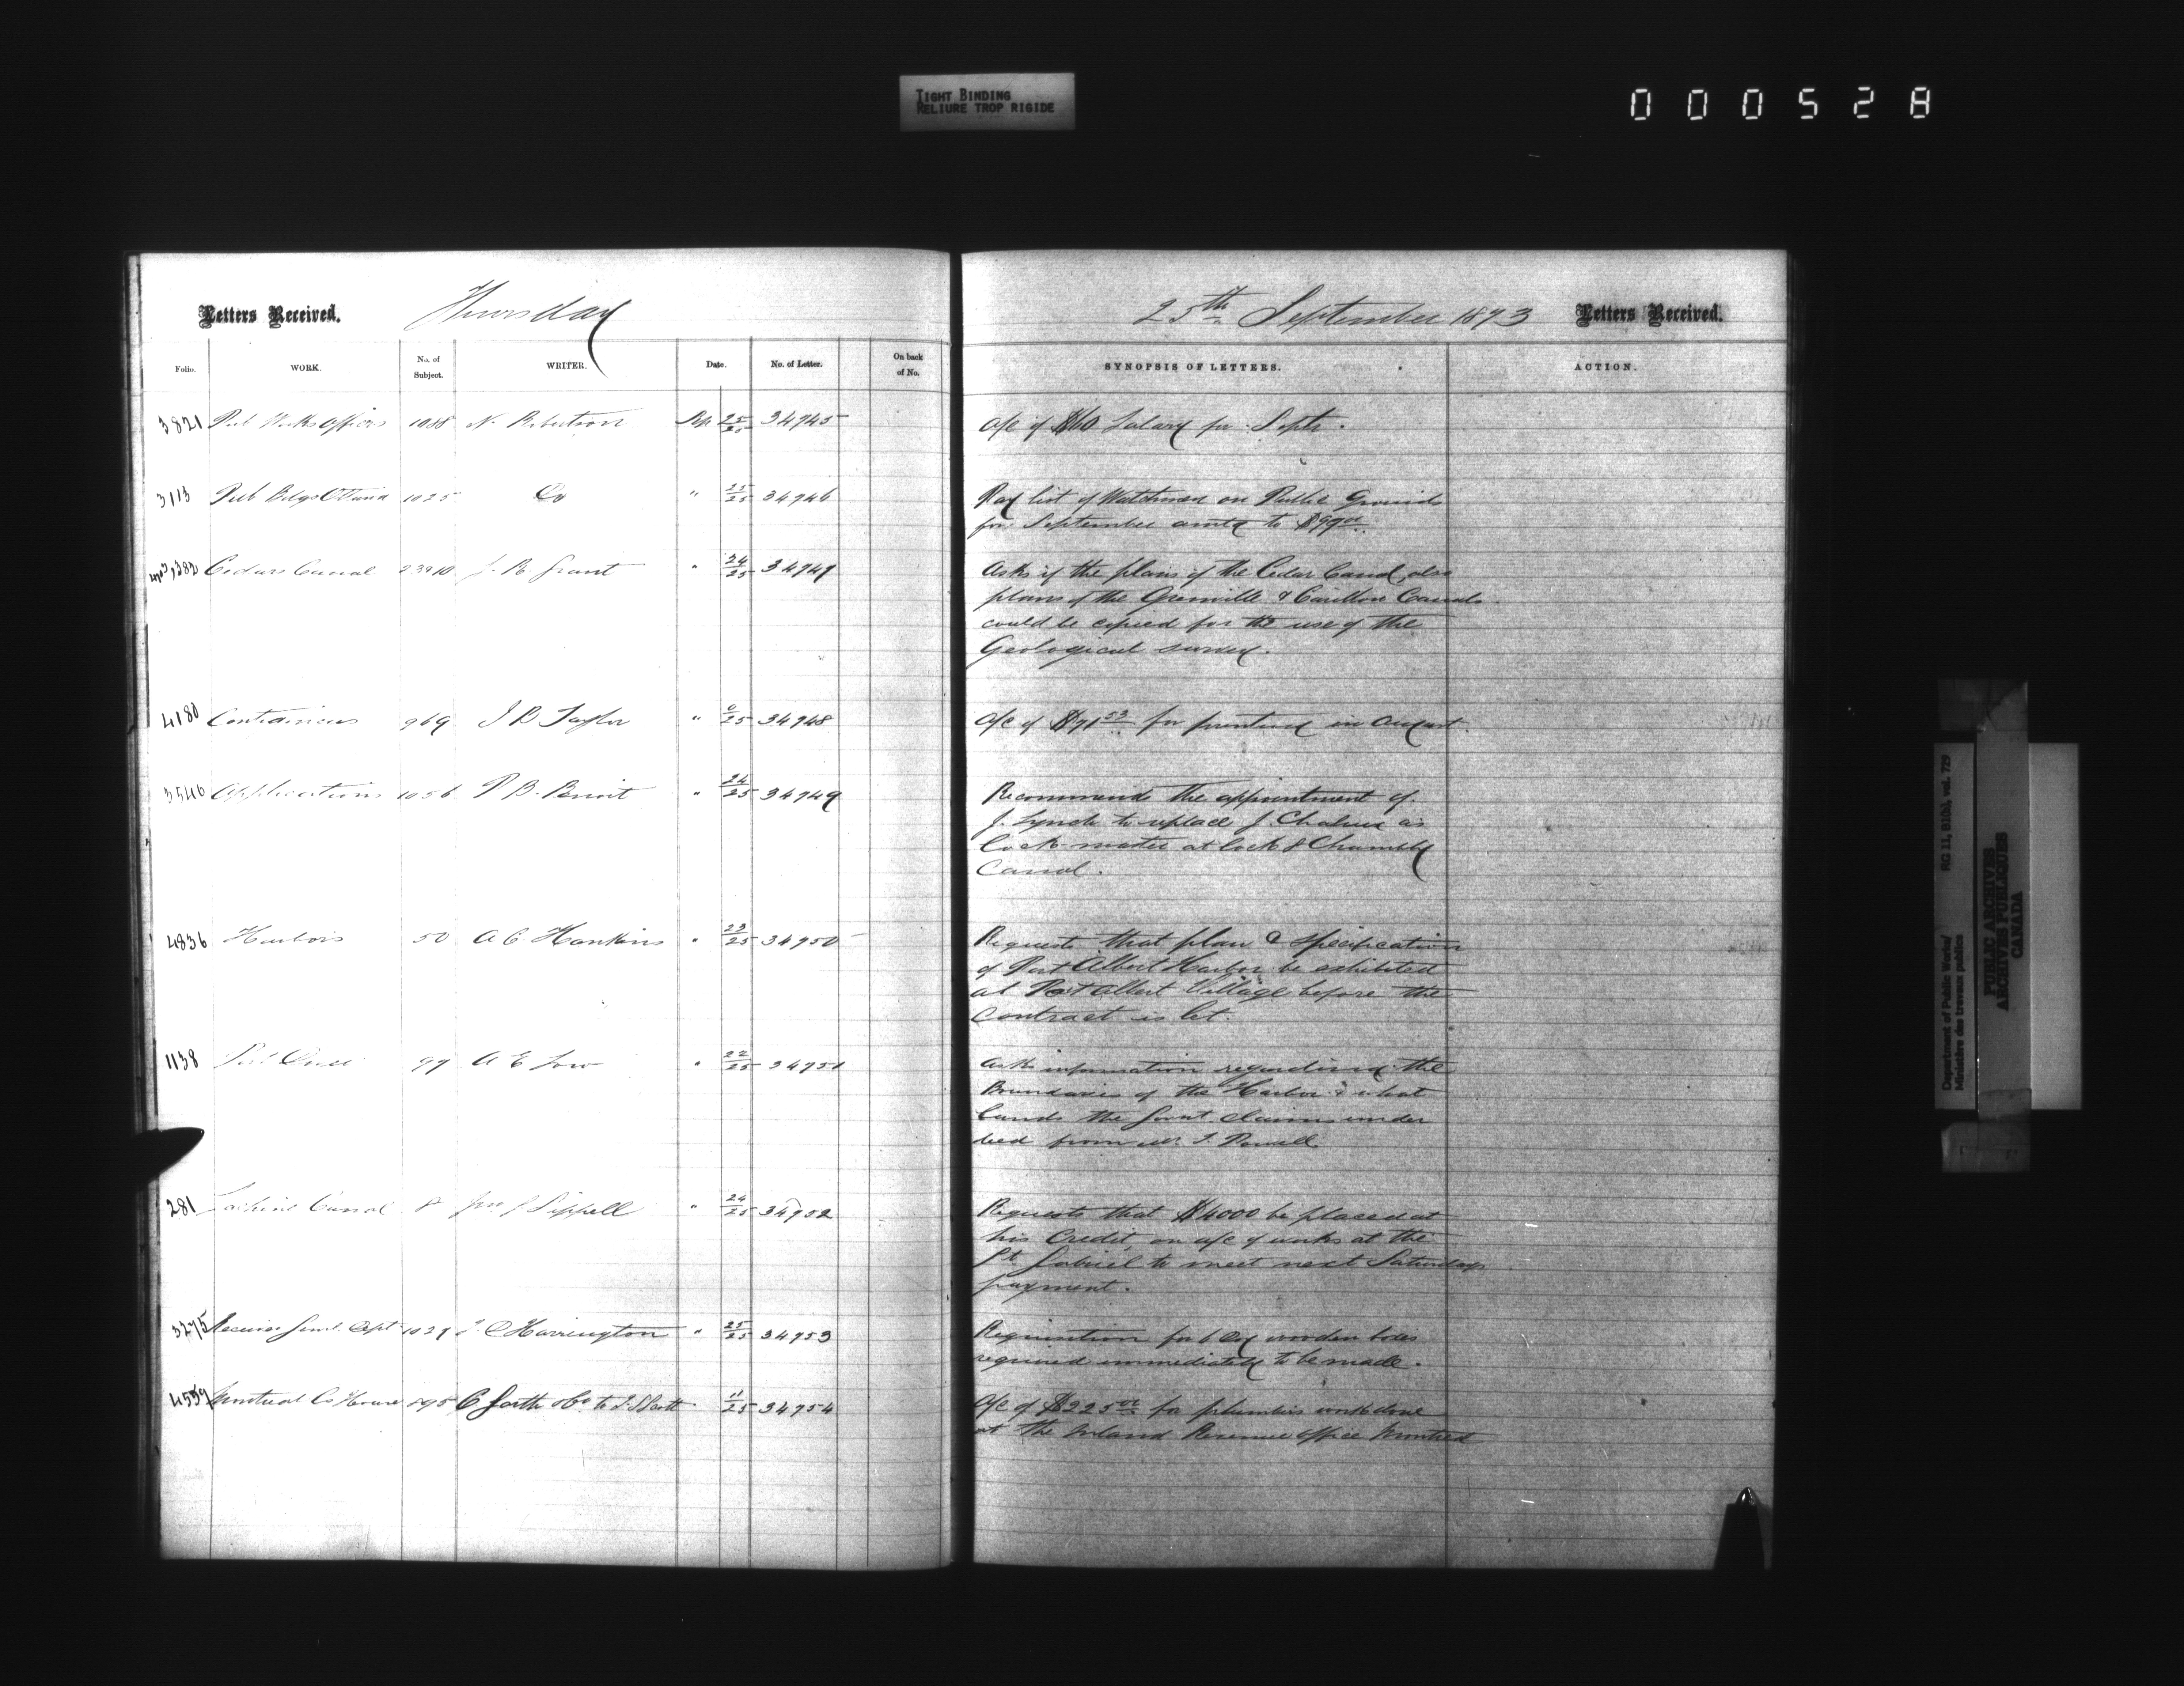 TIGHT BINDING
RELIURE TROP RIGIDE
000528
Letters Received. Thursday
25th September 1873 Letters Received.
Folio. WORK. No. of Subject. WRITER. Date. No. of Letter. On back of No.
SYNOPSIS OF LETTERS. ACTION.
3821 Pub Works Officers 1088 N. Robertson Sep 25/25 34745
a/c of $60 Salary for Septr.
3113 Pub Bdgs Ottawa 1025 Do " 25/25 34746
Pay list of Watchmen on Public Grounds
for September amtg to $99 00
382 Cedars Canal J. R. Grant " 24/25 34747
Asks if the plans of the Cedar Canal, also
plans of the Grenville & Carillon Canals
could be copied for the use of the
Geological survey.
4180 Contingencies 969 I B Taylor " 0/25 34748
a/c of $71 53 for printing in August.
3546 Applications 1056 P B. Benoit " 24/25 34749
Recommends the appointment of
J. Lynch to replace J. as
lock master at lock 8 Chambly
Canal.
4836 Harbors 50 A C. Hawkins " 23/25 34750
Requests that plan & specification
of Port Albert Harbor be exhibited
at Port Albert Village before the
Contract is let.
1138 99 A E Low " 22/25 34751
Asks information regarding the
Boundaries of the Harbor & what
lands the Govnt claims under
deed from Mr. I. Powell
281 Lachine Canal 8 Jno G Sippell " 24/25 34752
Requests that $4000 be placed at
his Credit, on a/c of works at the
St Gabriel to meet next Saturdays
payment.
3275 Receiver Genl. Dept 1029 T. D Harrington " 25/25 34753
Requisition for 6 wooden boxes
required immediately to be made.
4559 Montreal Co House 895 C Garth & Co to " 11/25 34754
a/c of $225 00 for plumbers work done
at the Inland Revenue Office Montreal
Department of Public Works/ RG 11, B1(b), vol. 729
Ministère des travaux publics
PUBLIC ARCHIVES
ARCHIVES PUBLIQUES
CANADA